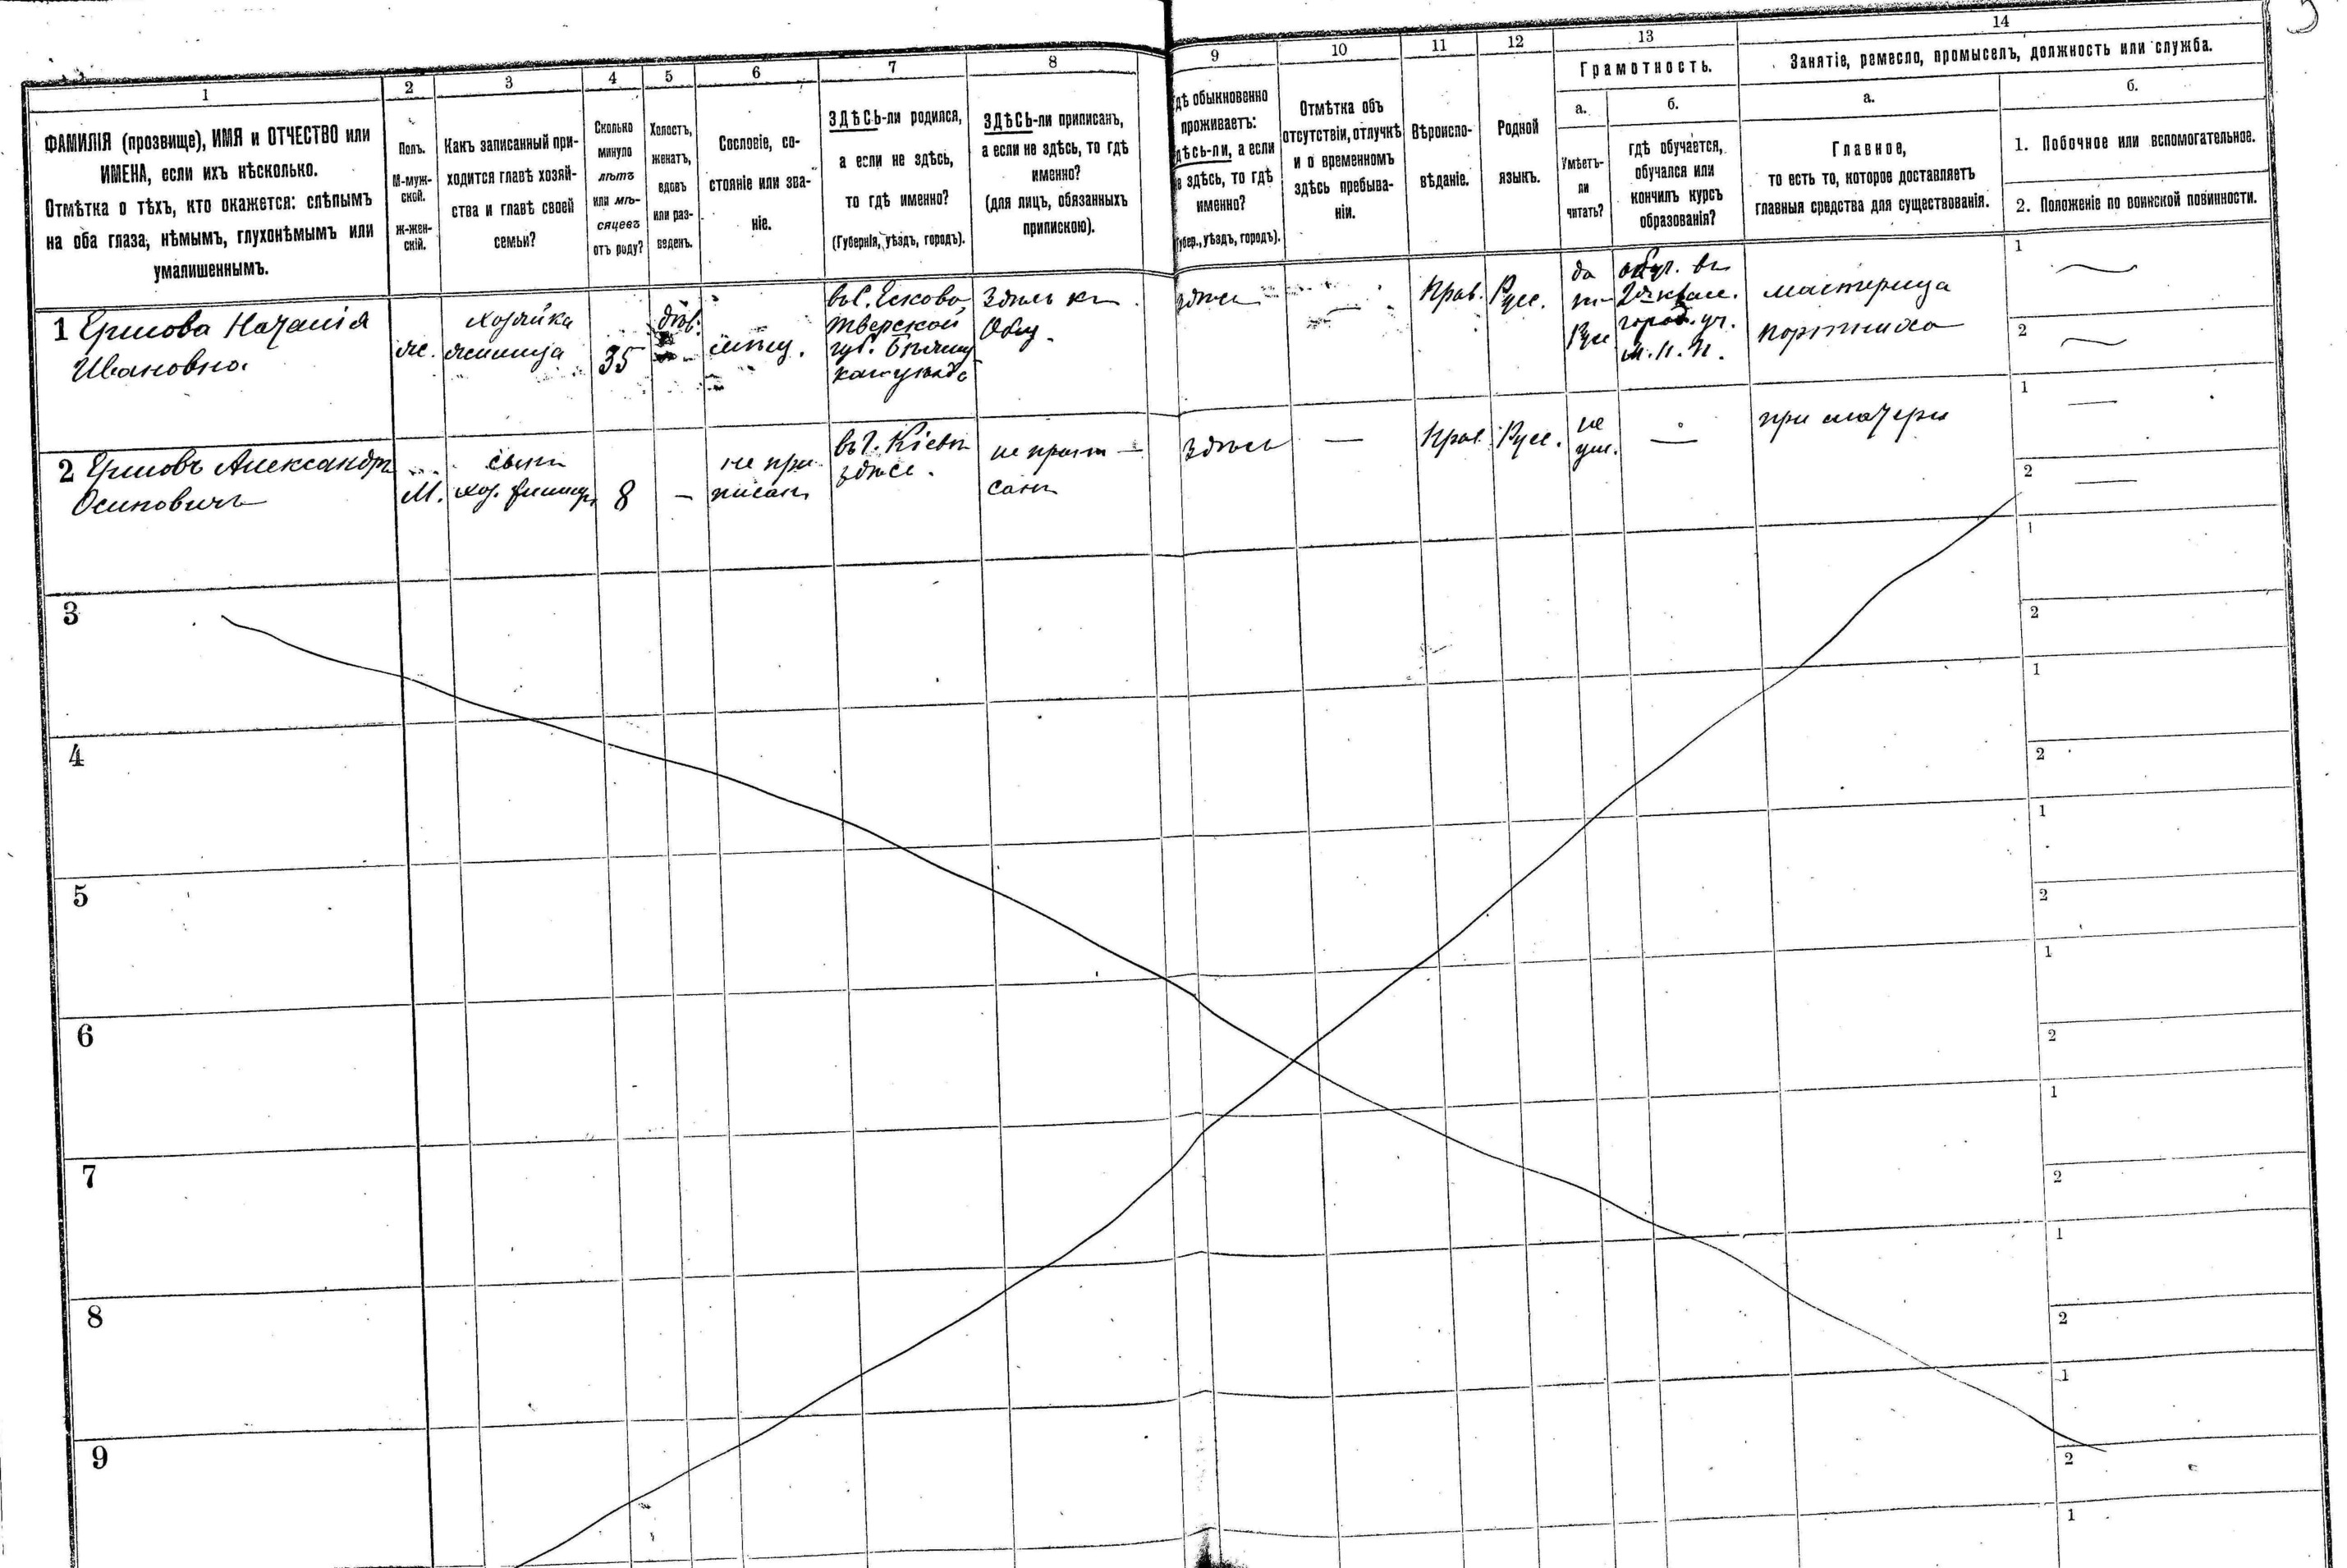 1
2
3
4
5
6
7
8
9
10
11
12
13
14
ФАМИЛІЯ (прозвище), ИМЯ и ОТЧЕСТВО или
ИМЕНА, если ихъ нѣсколько.
Отмѣтка о тѣхъ, кто окажется: слѣпымъ
на оба глаза, нѣмымъ, глухонѣмымъ или
умалишеннымъ.
Полъ.
М-муж-
ской.
Ж-жен-
скій.
Какъ записанный при-
ходится главѣ хозяй-
ства и главѣ своей
семьи?
Сколько
минуло
лѣтъ
или мѣ-
сяцевъ
отъ роду?
Холостъ,
женатъ,
вдовъ
или раз-
веденъ.
Сословіе, со-
стояніе или зва-
ніе.
ЗДѢСЬ-ли родился,
а если не здѣсь,
то гдѣ именно?
(Губернія, уѣздъ, городъ).
ЗДѢСЬ-ли приписанъ,
а если не здѣсь, то гдѣ
именно?
(для лицъ, обязанныхъ
припискою).
дѣ обыкновенно
проживаетъ:
дѣсь-ли, а если
не здѣсь, то гдѣ
именно?
убер., уѣздъ, городъ).
Отмѣтка объ
отсутствіи, отлучкѣ
и о временномъ
здѣсь пребыва-
ніи.
Вѣроиспо-
вѣданіе.
Родной
языкъ.
Грамотность.
а.
Умѣетъ-
ли
читать?
б.
гдѣ обучается,
обучался или
кончилъ курсъ
образованія?
Занятіе, ремесло, промыселъ, должность или служба.
а.
Главное,
то есть то, которое доставляетъ
главныя средства для существованія.
б.
1. Побочное или вспомогательное.
2. Положеніе по воинской повинности.
1 Ершова Наталія
Ивановна
ж.
хозяйка
35
дѣв.
мѣщ.
въ С. Есково
Тверской
губ. Бѣжец
каго уѣзда
Здѣсь къ
Общ.
здѣсь
—
Прав.
Русс.
да
Русс
обуч. въ
2хъ класс.
город. уч.
М. Н. П.
мастерица
портниха
1
2
2 Ершовъ Александръ
Осиповичъ
М.
сынъ
8
—
не при
писанъ
въ г. Кіевѣ
здѣсь.
не припи—
санъ
здѣсь
—
Прав.
Русс.
не
ум.
—
при матери
1 —
2 —
3
1
2
4
1
2
5
1
2
6
1
2
7
1
2
8
1
2
9
1
2
1